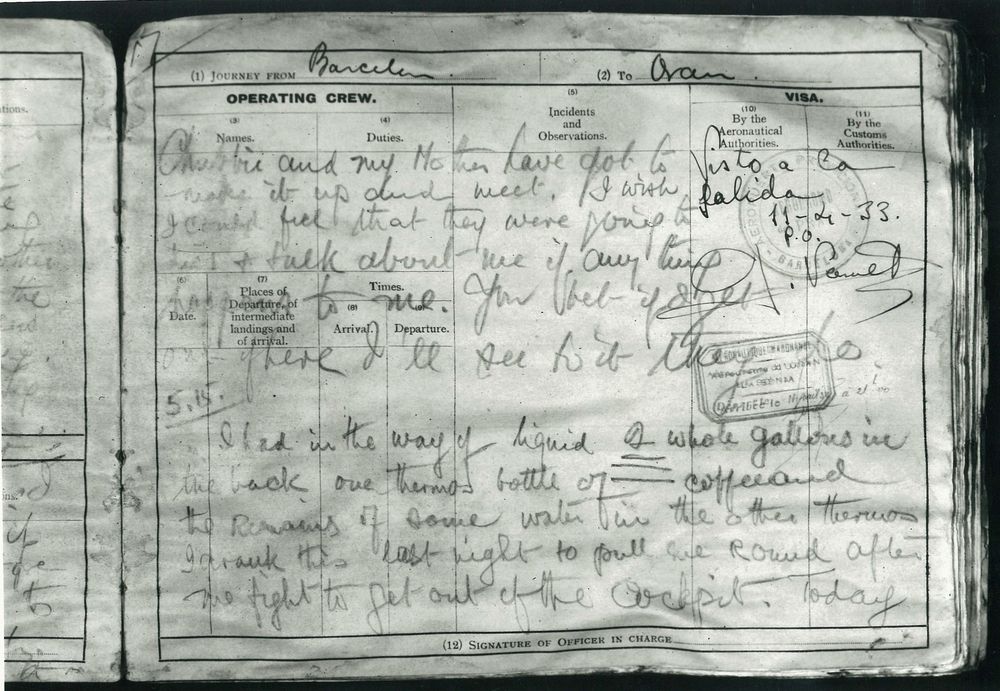 17
(1) JOURNEY FROM Barcelona (2) To Oran
OPERATING CREW. (5) VISA.
(3) Names. (4) Duties. Incidents and Observations. (10) By the Aeronautical Authorities. (11) By the Customs Authorities.
Chubbie and my Mother have got to
make it up and meet. I wish
I could feel that they were going to
talk about me if anything
to me. You bet if I get
out there I'll see to it they do
Visto a la
salida
11-4-33.
P.O.
(6) Date. (7) Places of Departure, of intermediate landings and of arrival. Times.
(8) Arrival. (9) Departure.
5.15.
I had in the way of liquid 2 whole gallons in
the back one thermos bottle of coffee and
the remains of some water in the other thermos
I drank this last night to pull me round after
me fight to get out of the cockpit. Today
(12) SIGNATURE OF OFFICER IN CHARGE
tions.
other
the
ns.
if
to